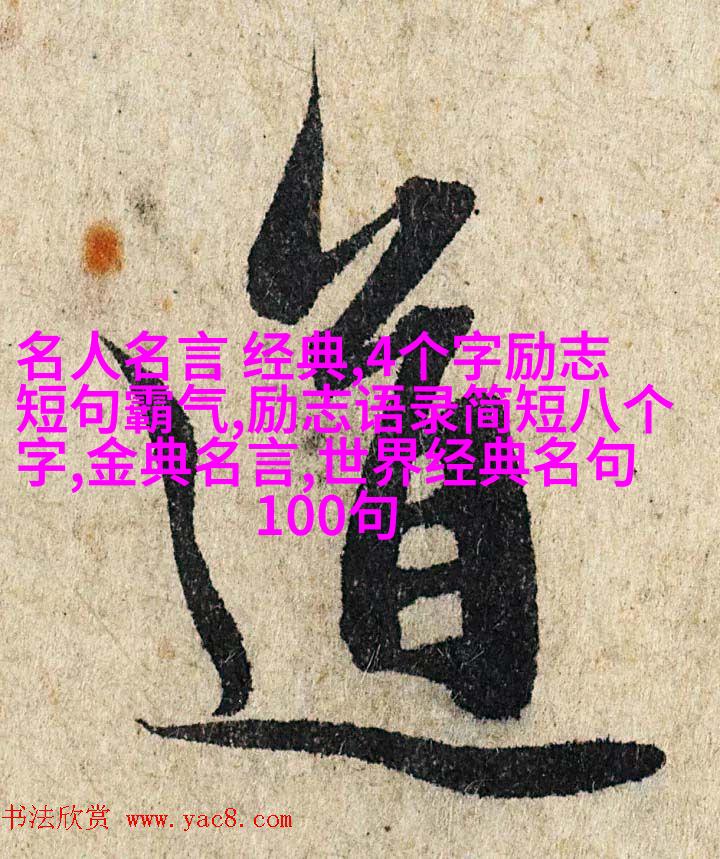 道
名人名言 经典,4个字励志
短句霸气,励志语录简短八个
字,金典名言,世界经典名句
100句
书法欣赏 www.yac8.com